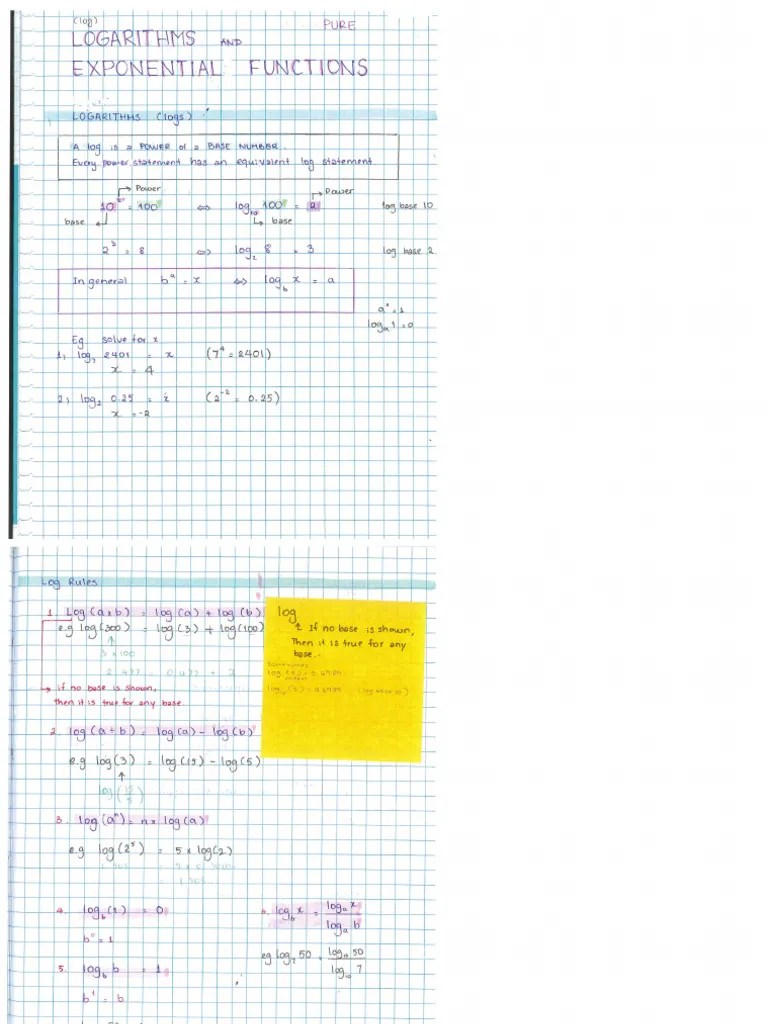 (log)
PURE
LOGARITHMS AND
EXPONENTIAL FUNCTIONS
LOGARITHMS (logs)
A log is a POWER of a BASE NUMBER.
Every power statement has an equivalent log statement
→ Power
→ Power
10² = 100 ⇔ log₁₀ 100 = 2 log base 10
base
base
2³ = 8 ⇔ log₂ 8 = 3 log base 2
In general bᵃ = x ⇔ log_b x = a
a⁰ = 1
logₐ 1 = 0
Eg. solve for x
1) log₇ 2401 = x (7⁴ = 2401)
x = 4
2) log₂ 0.25 = x (2⁻² = 0.25)
x = -2
Log Rules
1. Log (a×b) = log (a) + log (b)
e.g log (300) = log (3) + log (100)
3 × 100
→ if no base is shown,
then it is true for any base.
log
If no base is shown,
Then it is true for any
base.
2. log (a ÷ b) = log (a) - log (b)
e.g log (3) = log (15) - log (5)
↑
log (15/5)
3. log (aⁿ) = n × log (a)
e.g log (2⁵) = 5 × log (2)
4. log_b (1) = 0
b⁰ = 1
5. log_b b = 1
b¹ = b
6. log_b x = logₐ x / logₐ b
eg log₇ 50 = log₁₀ 50 / log₁₀ 7